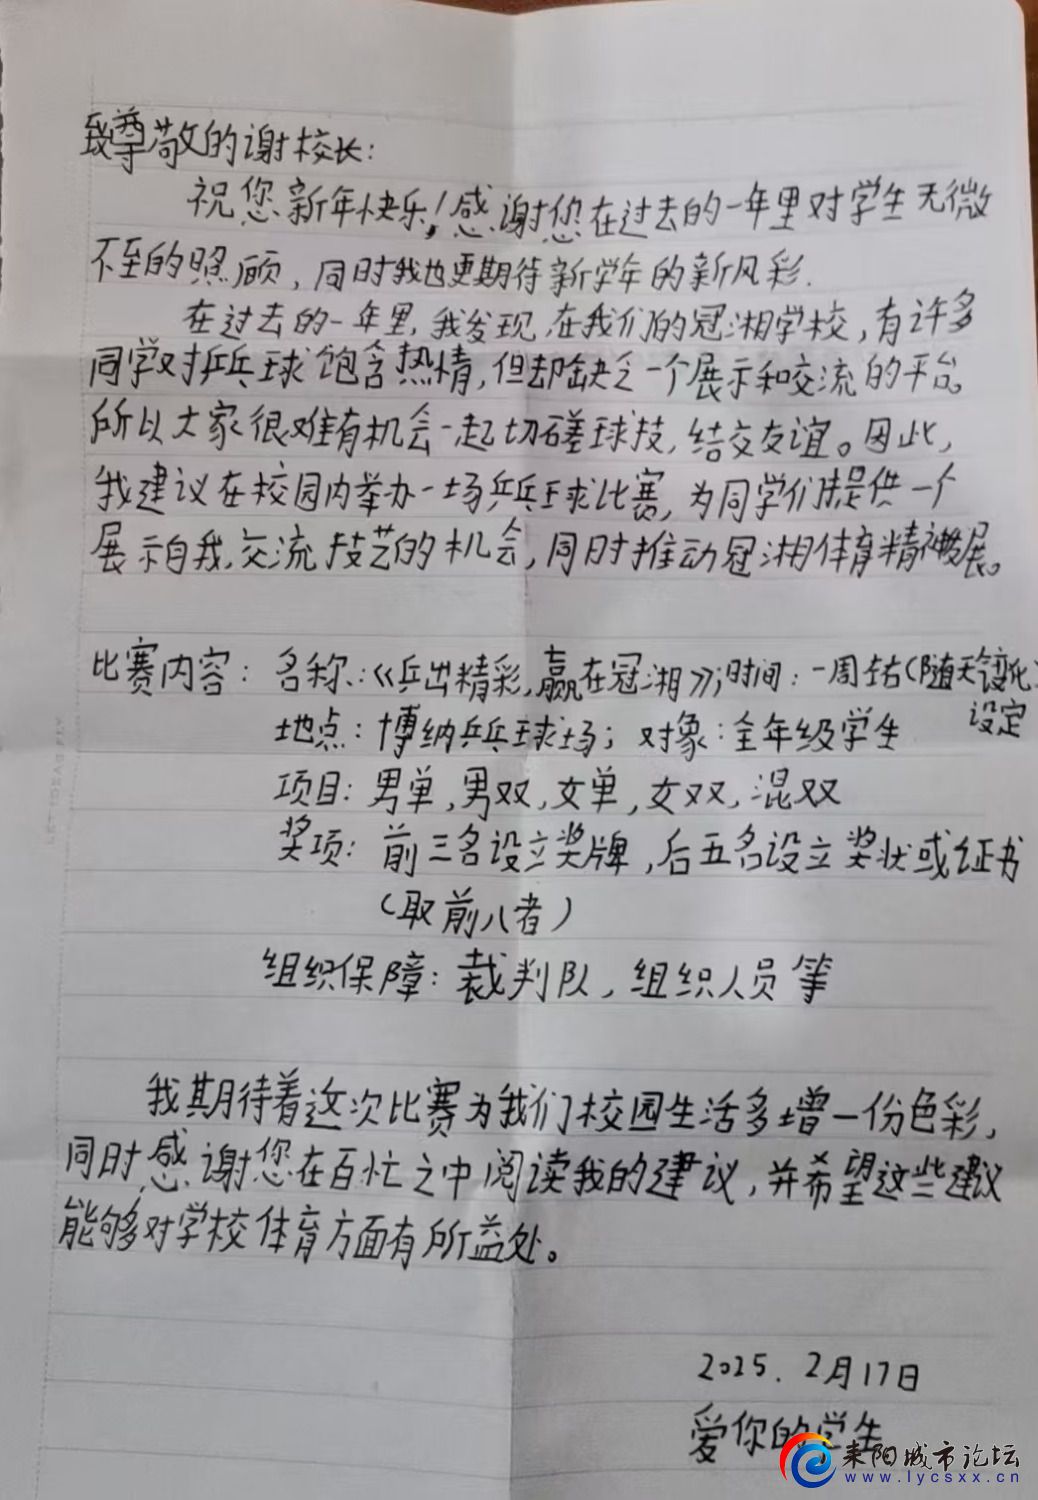 致尊敬的谢校长:
祝您新年快乐!感谢您在过去的一年里对学生无微
不至的照顾,同时我也更期待新学年的新风彩.
在过去的一年里,我发现,在我们的冠湘学校,有许多
同学对乒乓球饱含热情,但却缺乏一个展示和交流的平台。
所以大家很难有机会一起切磋球技,结交友谊。因此,
我建议在校园内举办一场乒乓球比赛,为同学们提供一个
展示自我,交流技艺的机会,同时推动冠湘体育精神发展。
比赛内容:名称:《乒出精彩,赢在冠湘》;时间:一周左右(随天气变化)
设定
地点:博纳乒乓球场;对象:全年级学生
项目:男单,男双,女单,女双,混双
奖项:前三名设立奖牌,后五名设立奖状或证书
(取前八者)
组织保障:裁判队,组织人员等
我期待着这次比赛为我们校园生活多增一份色彩,
同时感谢您在百忙之中阅读我的建议,并希望这些建议
能够对学校体育方面有所益处。
2025.2月17日
爱你的学生
耒阳城市论坛
www.lycsxx.cn